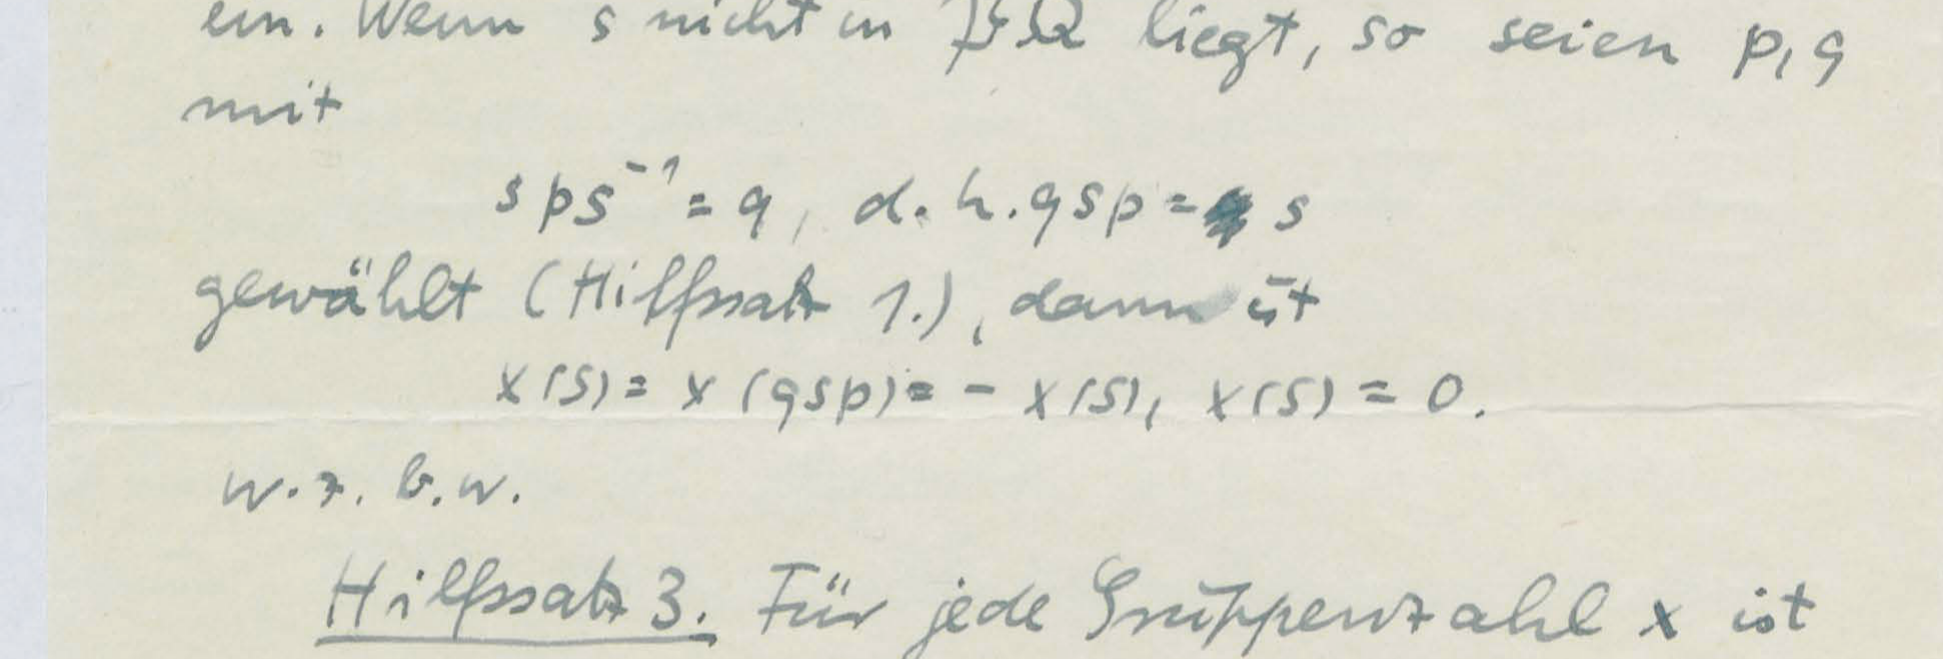 ein. Wenn s nicht in 𝔓𝔔 liegt, so seien p, q
mit
s p s⁻¹ = q, d. h. q s p = s
gewählt (Hilfssatz 1.), dann ist
x(s) = x(qsp) = - x(s), x(s) = 0.
w. z. b. w.
Hilfssatz 3. Für jede Gruppenzahl x ist